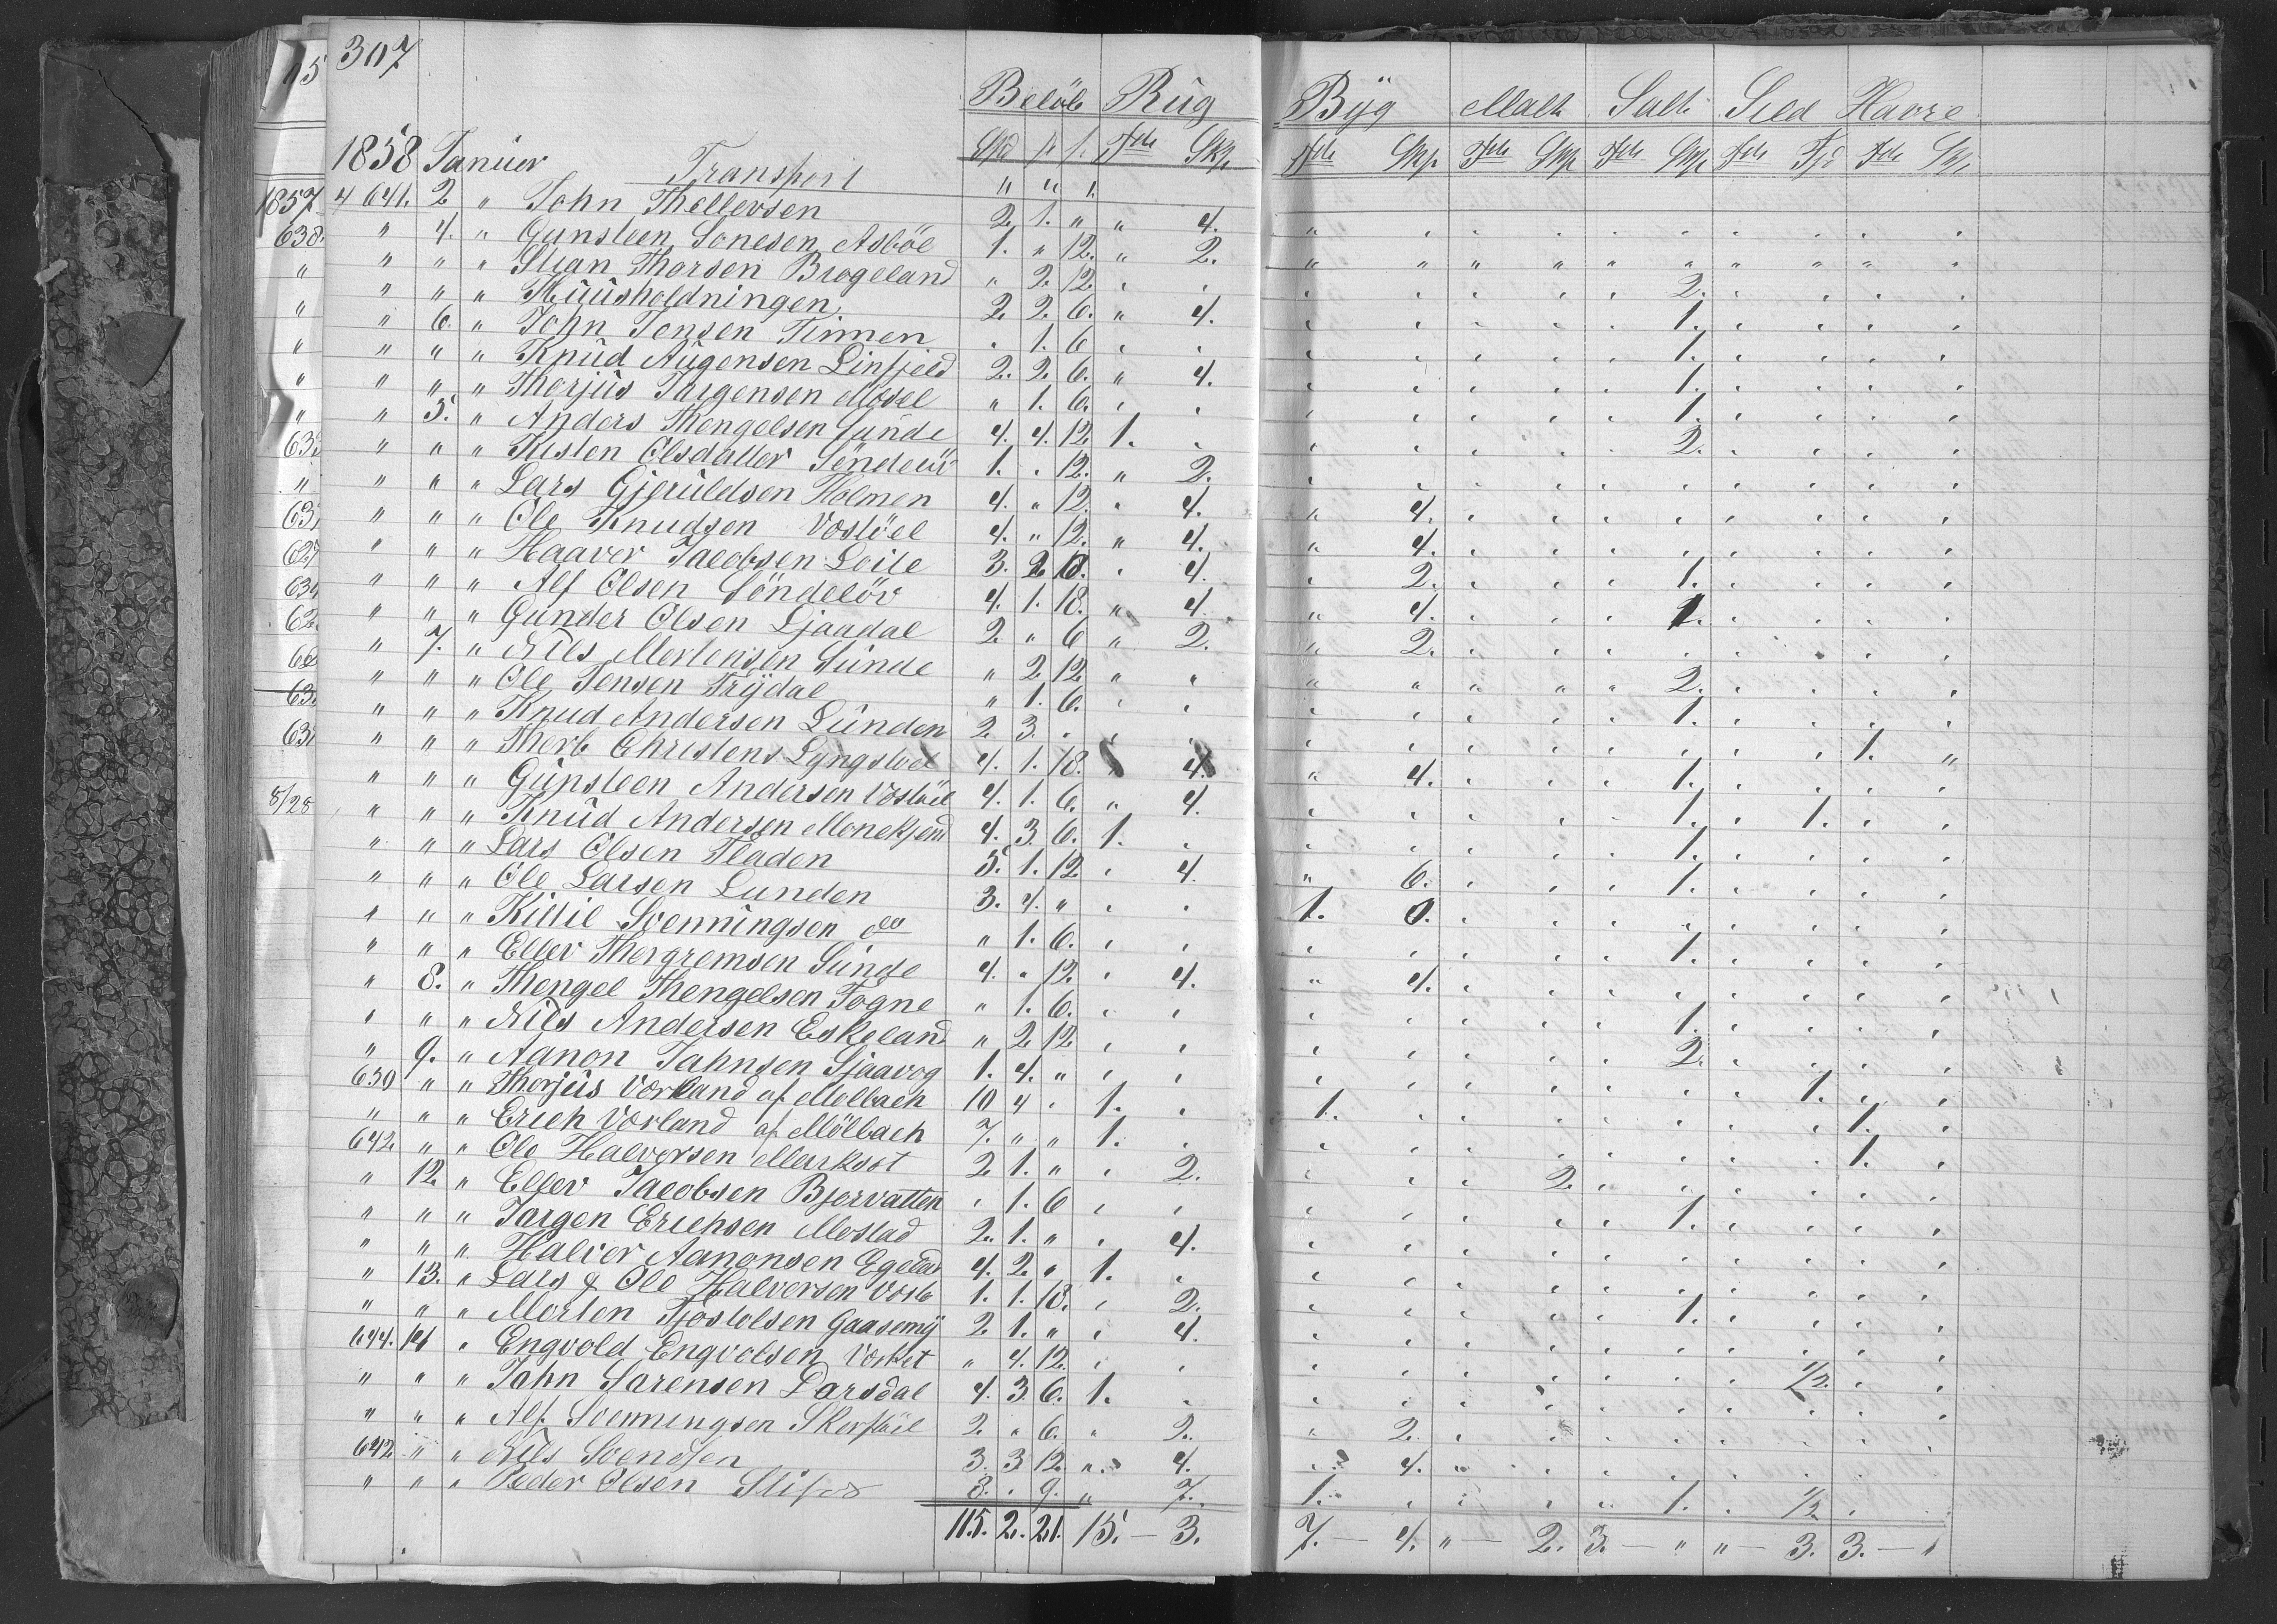 307
Beløb Rug Byg Malt Salt Sild Havre
1858 Januer Transport Spd " " " Tde Skp Tde Skp Tde Skp Tde Skp Tde Fjd Tde Sk
641. 2 " John Thellevsen 2. 1. " " 4.
" 4. " Gunsteen Sonesen Asböe 1. " 12. " 2.
" " " Stian Thorsen Brogeland " 2. 12. 2.
" " " Huusholdningen 2 2. 6. " 4. 1.
" 6. " John Jensen Tinnen 1. 6 1.
" " " Knud Augensen Linfjeld 2. 2. 6. " 4. 1.
" " " Thorjus Jargensen Mosel " 1. 6. 1.
" 5. " Anders Thengelsen Sunde 4. 4. 12. 1. 2.
" " " Kisten Olsdatter Söndelöv 1. 12. " 2.
" " " Lars Gjeruldsen Holmen 4. " 12. " 4. " 4.
" " " Ole Knudsen Vosböel 4. " 12. " 4. " 4.
" " " Haaver Jacobsen Loite 3. 2 18. 4. 2. 1.
" " " Alf Olsen Söndelöv 4. 1. 18. " 4. " 4. 1.
" " " Gunder Olsen Ljaadal 2. " 6 " 2. " 2.
" 7. " Nils Mortensen Sunde " 2 12 " " 2.
" " " Ole Jensen Trydal " 1. 6. 1.
" " " Knud Andersen Lunden 2 3. 1. "
" " " Thorb Christens Lyngstoel 4. 1. 18. 4. " 4. 1.
" " " Gunsteen Andersen Vosböel 4. 1. 6. " 4. 1. 1.
" " " Knud Andersen Monekjend 4. 3. 6. 1. 1.
" " " Lars Olsen Fladen 5. 1. 12 4. " 6. 1.
" " " Ole Larsen Lunden 3. 4. " 1. 0.
" " " Kittil Svenningsen do " 1. 6. 1.
" " " Ellev Thorgremsen Sunde 4. " 12. 4. " 4.
" 8. " Thengel Thengelsen Togne " 1. 6. 1.
" " " Nils Andersen Eskeland " 2 12 2.
" 9. " Aanon Jahnsen Sjaavog 1. 4. " 1.
630 " " Thorjus Vorland af Molbach 10 4 1. 1. 1.
" " " Erich Vorland af Mölbach 7. " " 1. 1.
642. " " Ole Halvorsen Markset 2 1. " 2. 2.
" 12. " Ellev Jacobsen Bjorvatten 1. 6 1.
" " " Jargen Erichsen Mostad 2. 1. " 4.
" " " Halvor Aanonsen Egeland 4. 2. " 1.
" 13. " Lars & Ole Halversen Vosb 1. 1. 18. 2. 1.
" " " Morten Tjostolsen Gaasemy 2 1. " 4.
644. 14 " Engvold Engvolsen Vorket " 4. 12. 1/2.
" " " Jahn Sarensen Darsdal 4. 3. 6. 1.
" " " Alf Svenningsen Skorstöel 2. " 6. " 2. " 2.
642 " " Nils Svendsen 3. 3 12. " 4. 4.
" " " Peder Olsen Stifos 8. 9. " 7. 1. 1. 1/2
115. 2. 21. 15. — 3. 7. — 4. " — 2. 3. — " " — 3. 3. — "
1857
638.
8/28